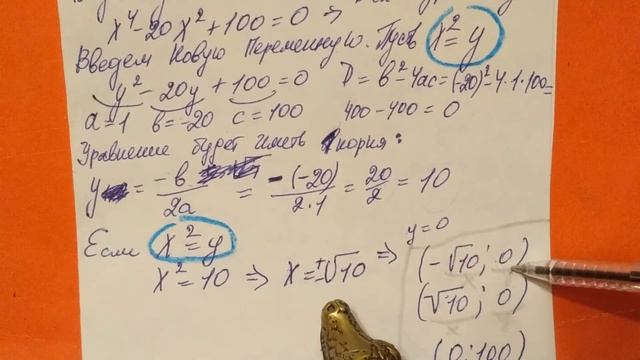 x⁴-20x²+100=0 ⇒
Введем Новую Переменную. Пусть x²=y
y²-20y+100=0 D=в²-4ac=(-20)²-4·1·100=
a=1 в=-20 c=100 400-400=0
Уравнение будет иметь 1 корня:
y = -в / 2a = -(-20) / 2·1 = 20/2 = 10
Если x²=y
y=0
x²=10 ⇒ x=±√10 ⇒ (-√10; 0)
(√10; 0)
(0;100)